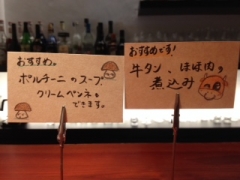 おすすめ。
ポルチーニのスープ
クリームペンネも
できます。
おすすめです!
牛タン、ほほ肉の
煮込み